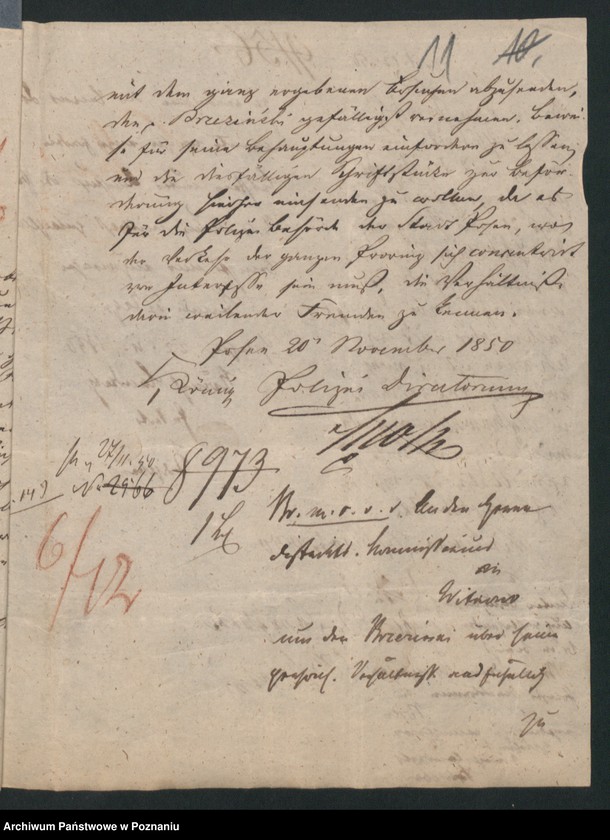 11 10.
mit dem ganz ergebenen Ersuchen abzusenden,
den p. Brzeziński gefälligst vernehmen, Bewei-
se für seine Behauptungen einfordern zu lassen,
und die diesfälligen Schriftstücke zur Beför-
derung hierher einsenden zu wollen, da es
für die Polizei Behörde der Stadt Posen, wo
der Verkehr der ganzen Provinz sich concentrirt
von Interesse sein muß, die Verhältnisse
darin weilender Fremden zu kennen.
Posen 20t November 1850
König Polizei Directorium
27/11 50
No 2966 8973
149
6/12
Br. m. s. v. r. An den Herrn
Distrikts-Kommissarius
in
Witkowo
um den Brzezinski über seine
persönl. Verhältnisse ausführlich
zu
Archiwum Państwowe w Poznaniu